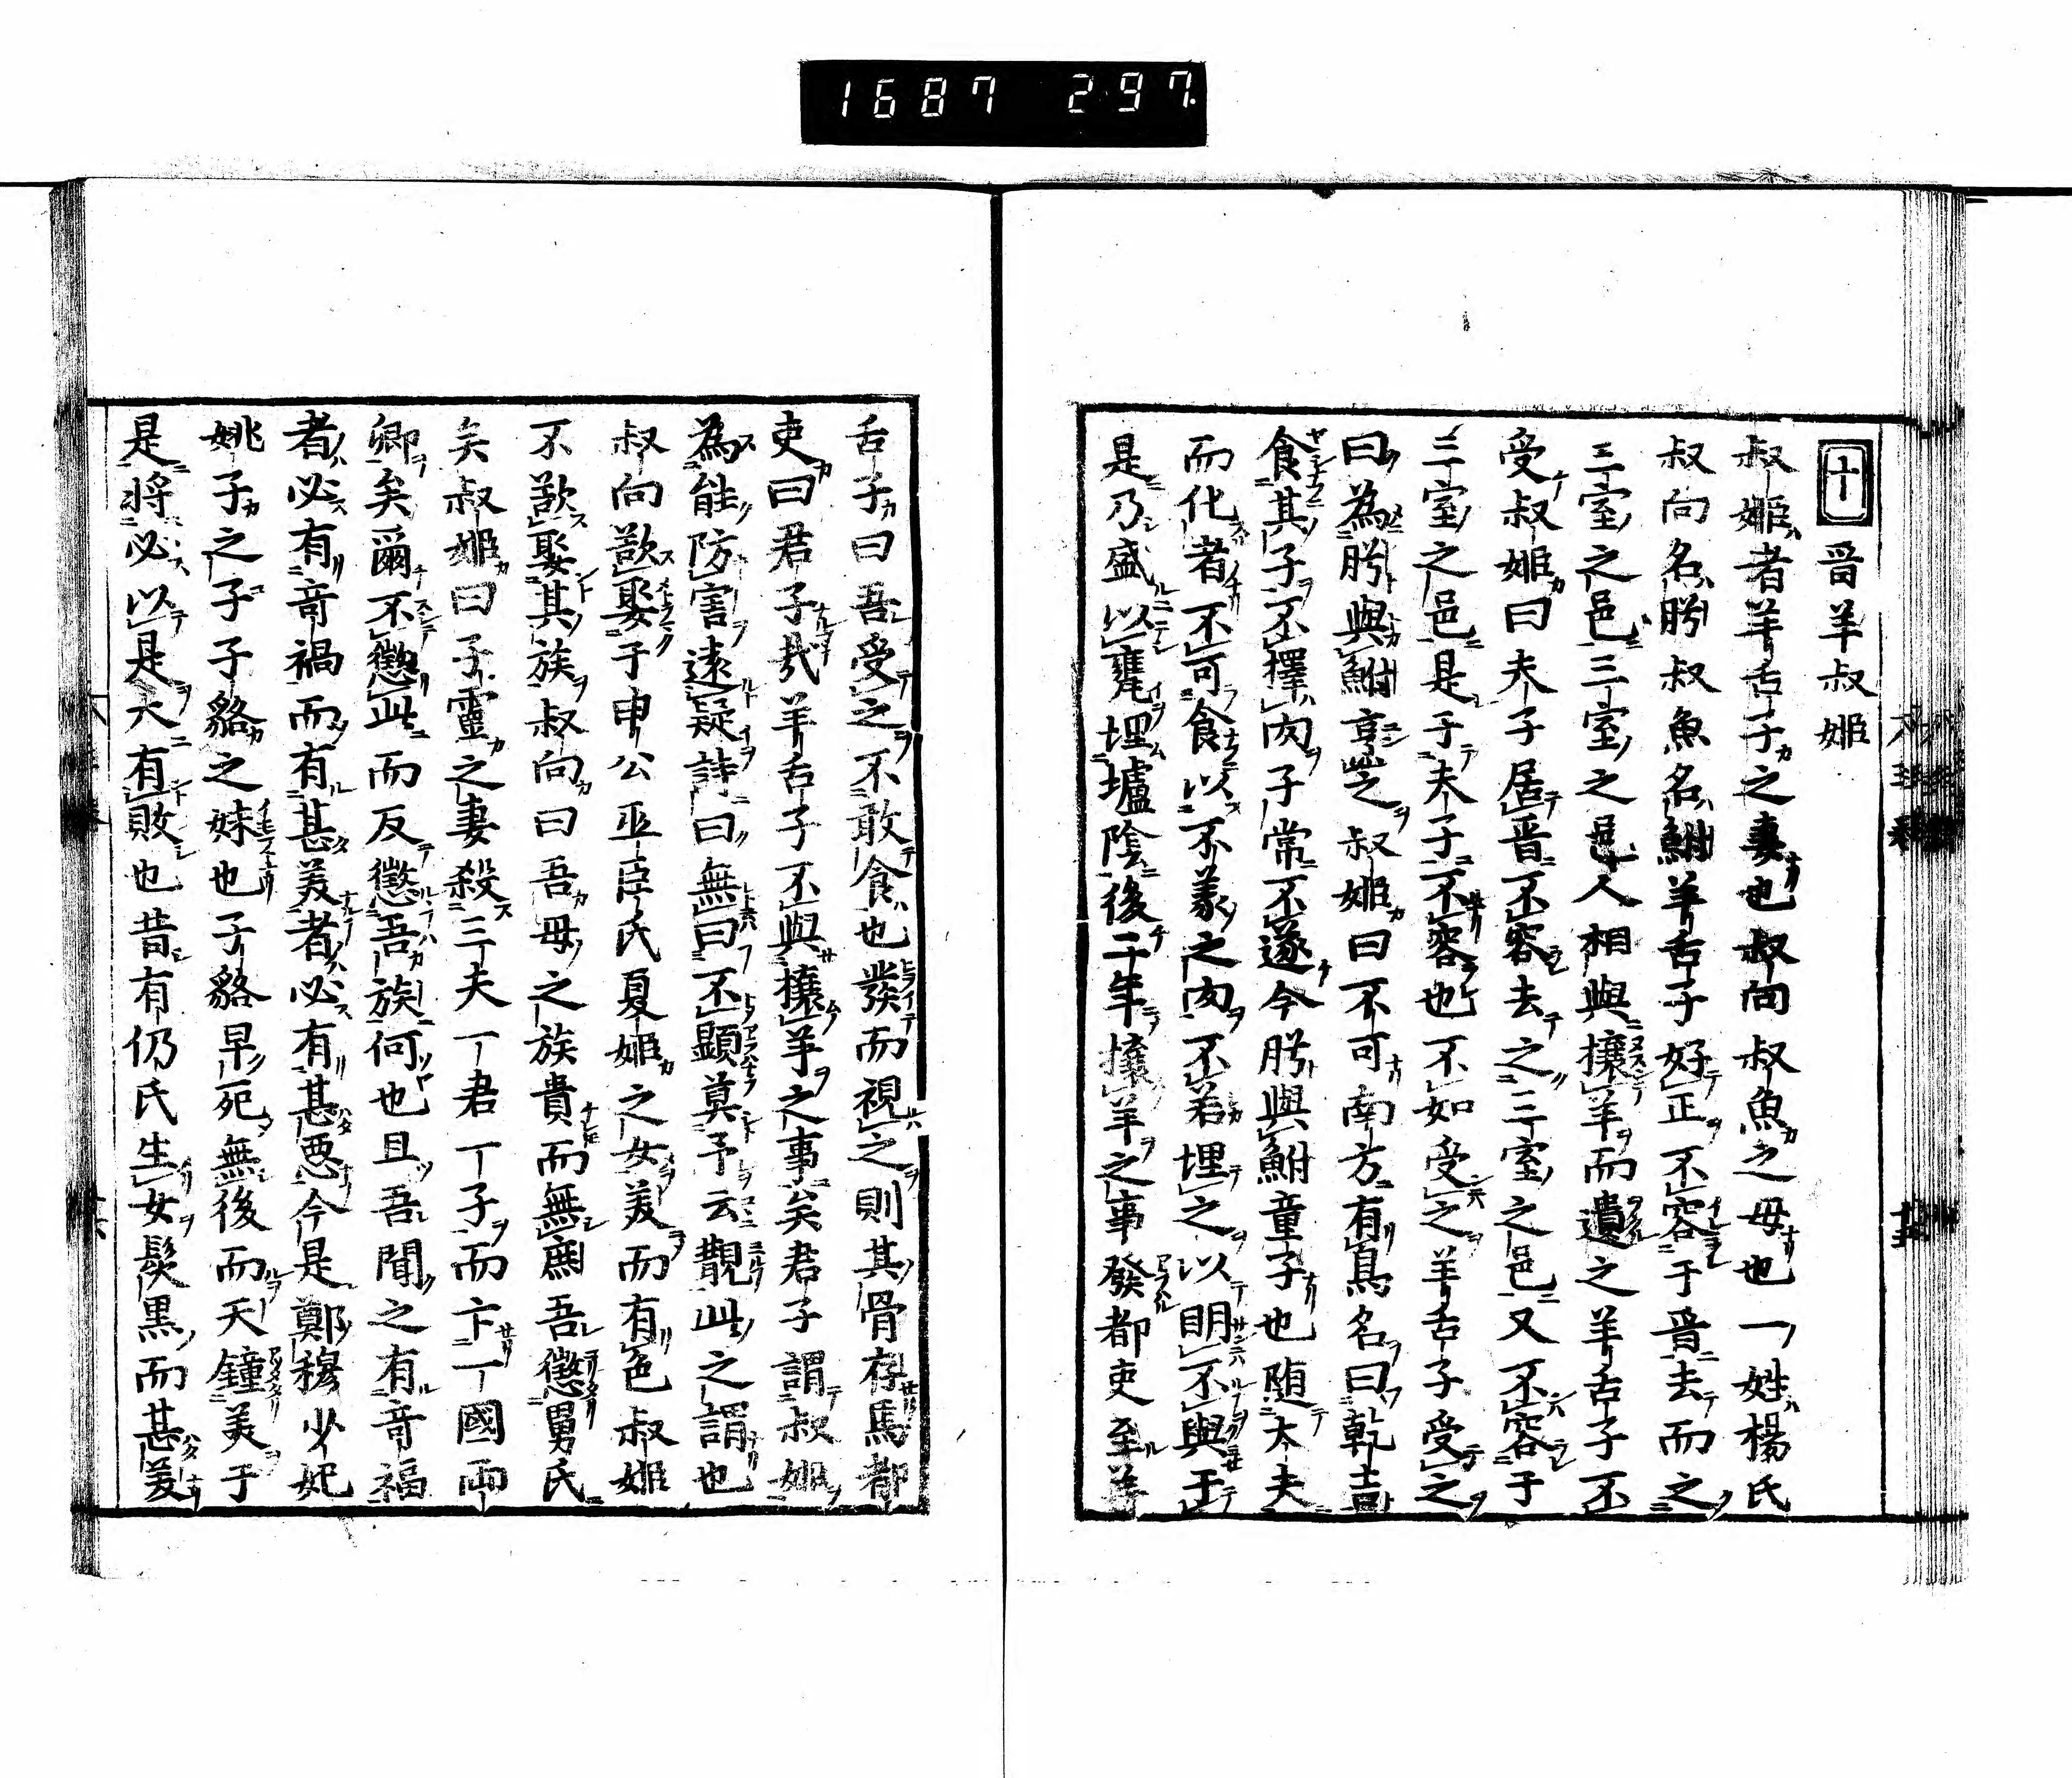 1687 297.
十 晉羊叔姬
叔姬者羊舌子之妻也叔向叔魚之母也一姓楊氏
叔向名肹叔魚名鮒羊舌子好正不容于晉去而之
三室之邑三室之邑人相與攘羊而遺之羊舌子不
受叔姬曰夫子居晉不容去之三室之邑又不容于
三室之邑是于夫子不容也不如受之羊舌子受之
曰為肹與鮒亨之叔姬曰不可南方有鳥名曰乾吉
食其子不擇肉子常不遂今肹與鮒童子也隨大夫
而化者不可食以不義之肉不若埋之以明不與于
是乃盛以甕埋壚陰後二年攘羊之事發都吏至羊
舌子曰吾受之不敢食也發而視之則其骨存焉都
吏曰君子哉羊舌子不與攘羊之事矣君子謂叔姬
為能防害遠疑詩曰無曰不顯莫予云覯此之謂也
叔向欲娶于申公巫臣氏夏姬之女美而有色叔姬
不欲娶其族叔向曰吾母之族貴而無庶吾懲舅氏
矣叔姬曰子靈之妻殺三夫一君一子而亡一國兩
卿矣爾不懲此而反懲吾族何也且吾聞之有奇福
者必有奇禍而有甚美者必有甚惡今是鄭穆少妃
姚子之子子貉之妹也子貉早死無後而天鍾美于
是將必以是大有敗也昔有仍氏生女髮黑而甚美